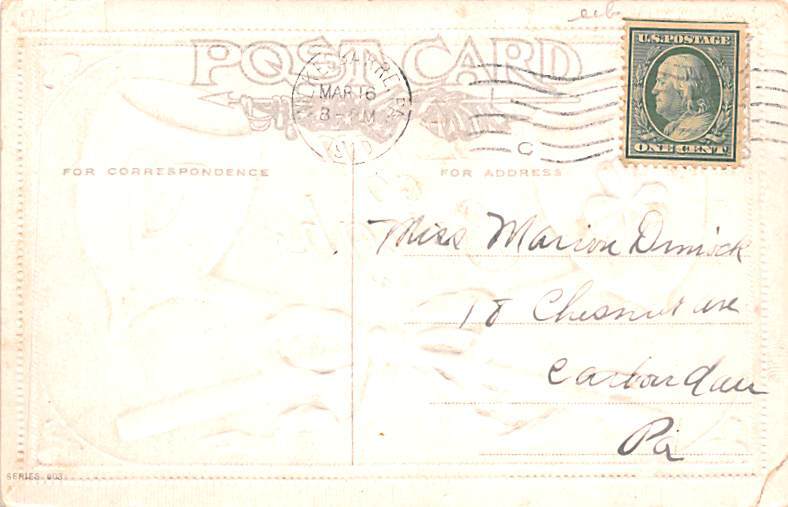 POST CARD
U.S. POSTAGE
ONE CENT
WILKES-BARRE, PA
MAR 16
8-PM
C
FOR CORRESPONDENCE
FOR ADDRESS
Miss Marion Dimock
18 Chesnut ave
Carbondale
Pa
SERIES 603